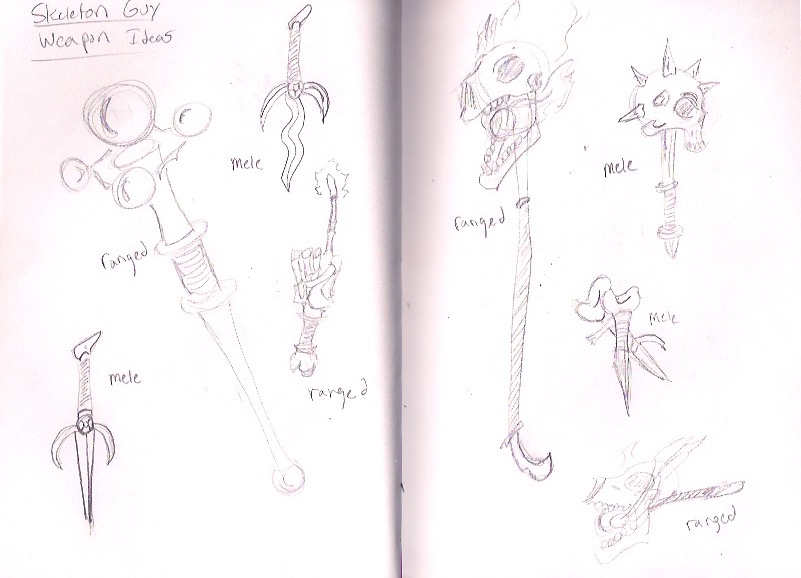 Skeleton Guy
Weapon Ideas
mele
ranged
ranged
mele
ranged
mele
mele
ranged